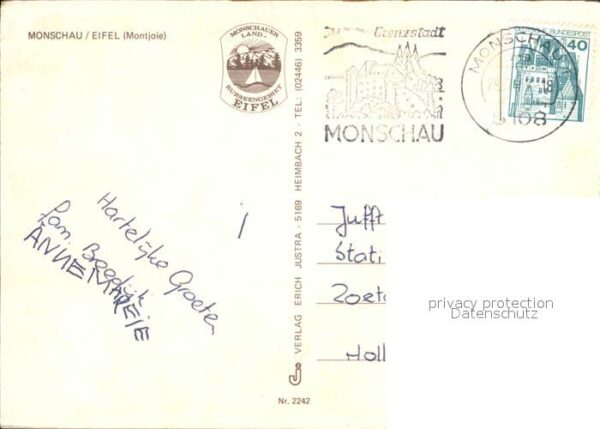 MONSCHAU / EIFEL (Montjoie)
MONSCHAUER
LAND-
RURSEENGEBIET
EIFEL
Grenzstadt
MONSCHAU
MONSCHAU 1
5108
BUNDESPOST
40
Hartelijke Groeten
fam.
ANNEMARIE
VERLAG ERICH JUSTRA - 5169 HEIMBACH 2 - TEL. (02446) 3359
Nr. 2242
Juff
Stati
Zoet
Holl
privacy protection
Datenschutz